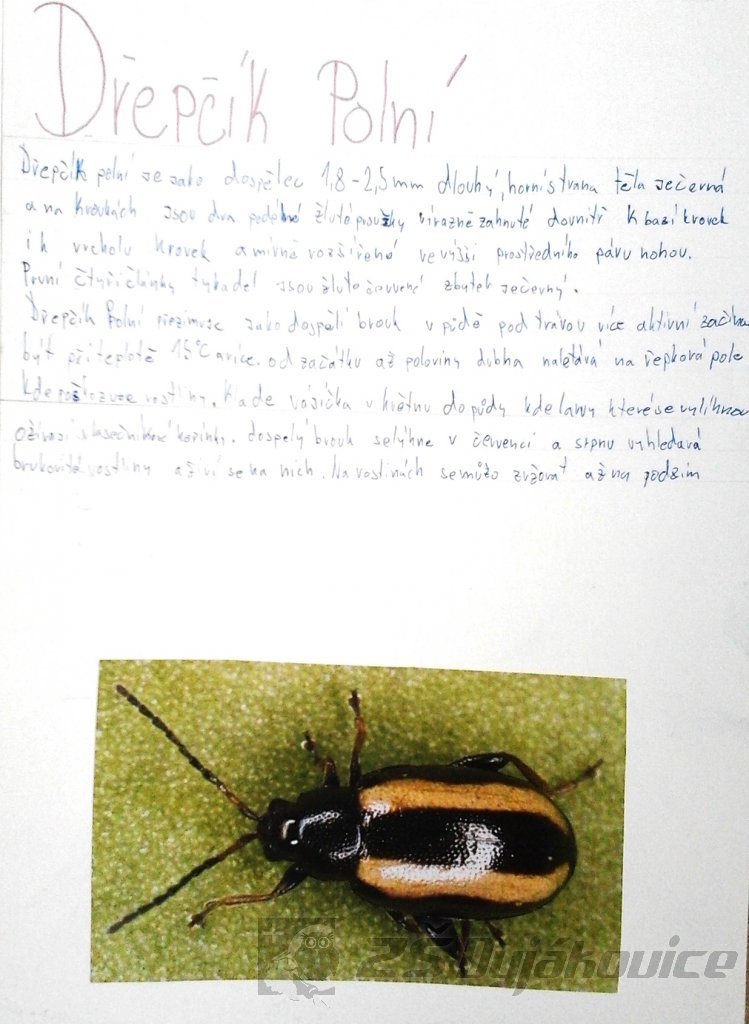 Dřepčík Polní
Dřepčík polní je jako dospělec 1,8-2,5mm dlouhý, horní strana těla je černá
a na krovkách jsou dva podélné žluté proužky výrazně zahnuté dovnitř k bazi krovek
i k vrcholu krovek a mírně rozšířené ve výšši prostředního páru nohou.
První čtyři články tykadel jsou žluto červené zbytek je černý.
Dřepčík Polní přezimuje jako dospělí brouk v půdě pod trávou více aktivní začíná
být při teplotě 15°C a více. od začátku až poloviny dubna nalétává na řepková pole
kde poškozuje rostliny. Klade vajíčka v květnu do půdy kde larvy které se vylíhnou
ožírají kořínky. dospělý brouk se lýhne v červenci a srpnu vyhledává
brukvovité rostliny a živí se na nich. Na rostlinách se může zdržovat až na podzim
ZŠ Dyjákovice